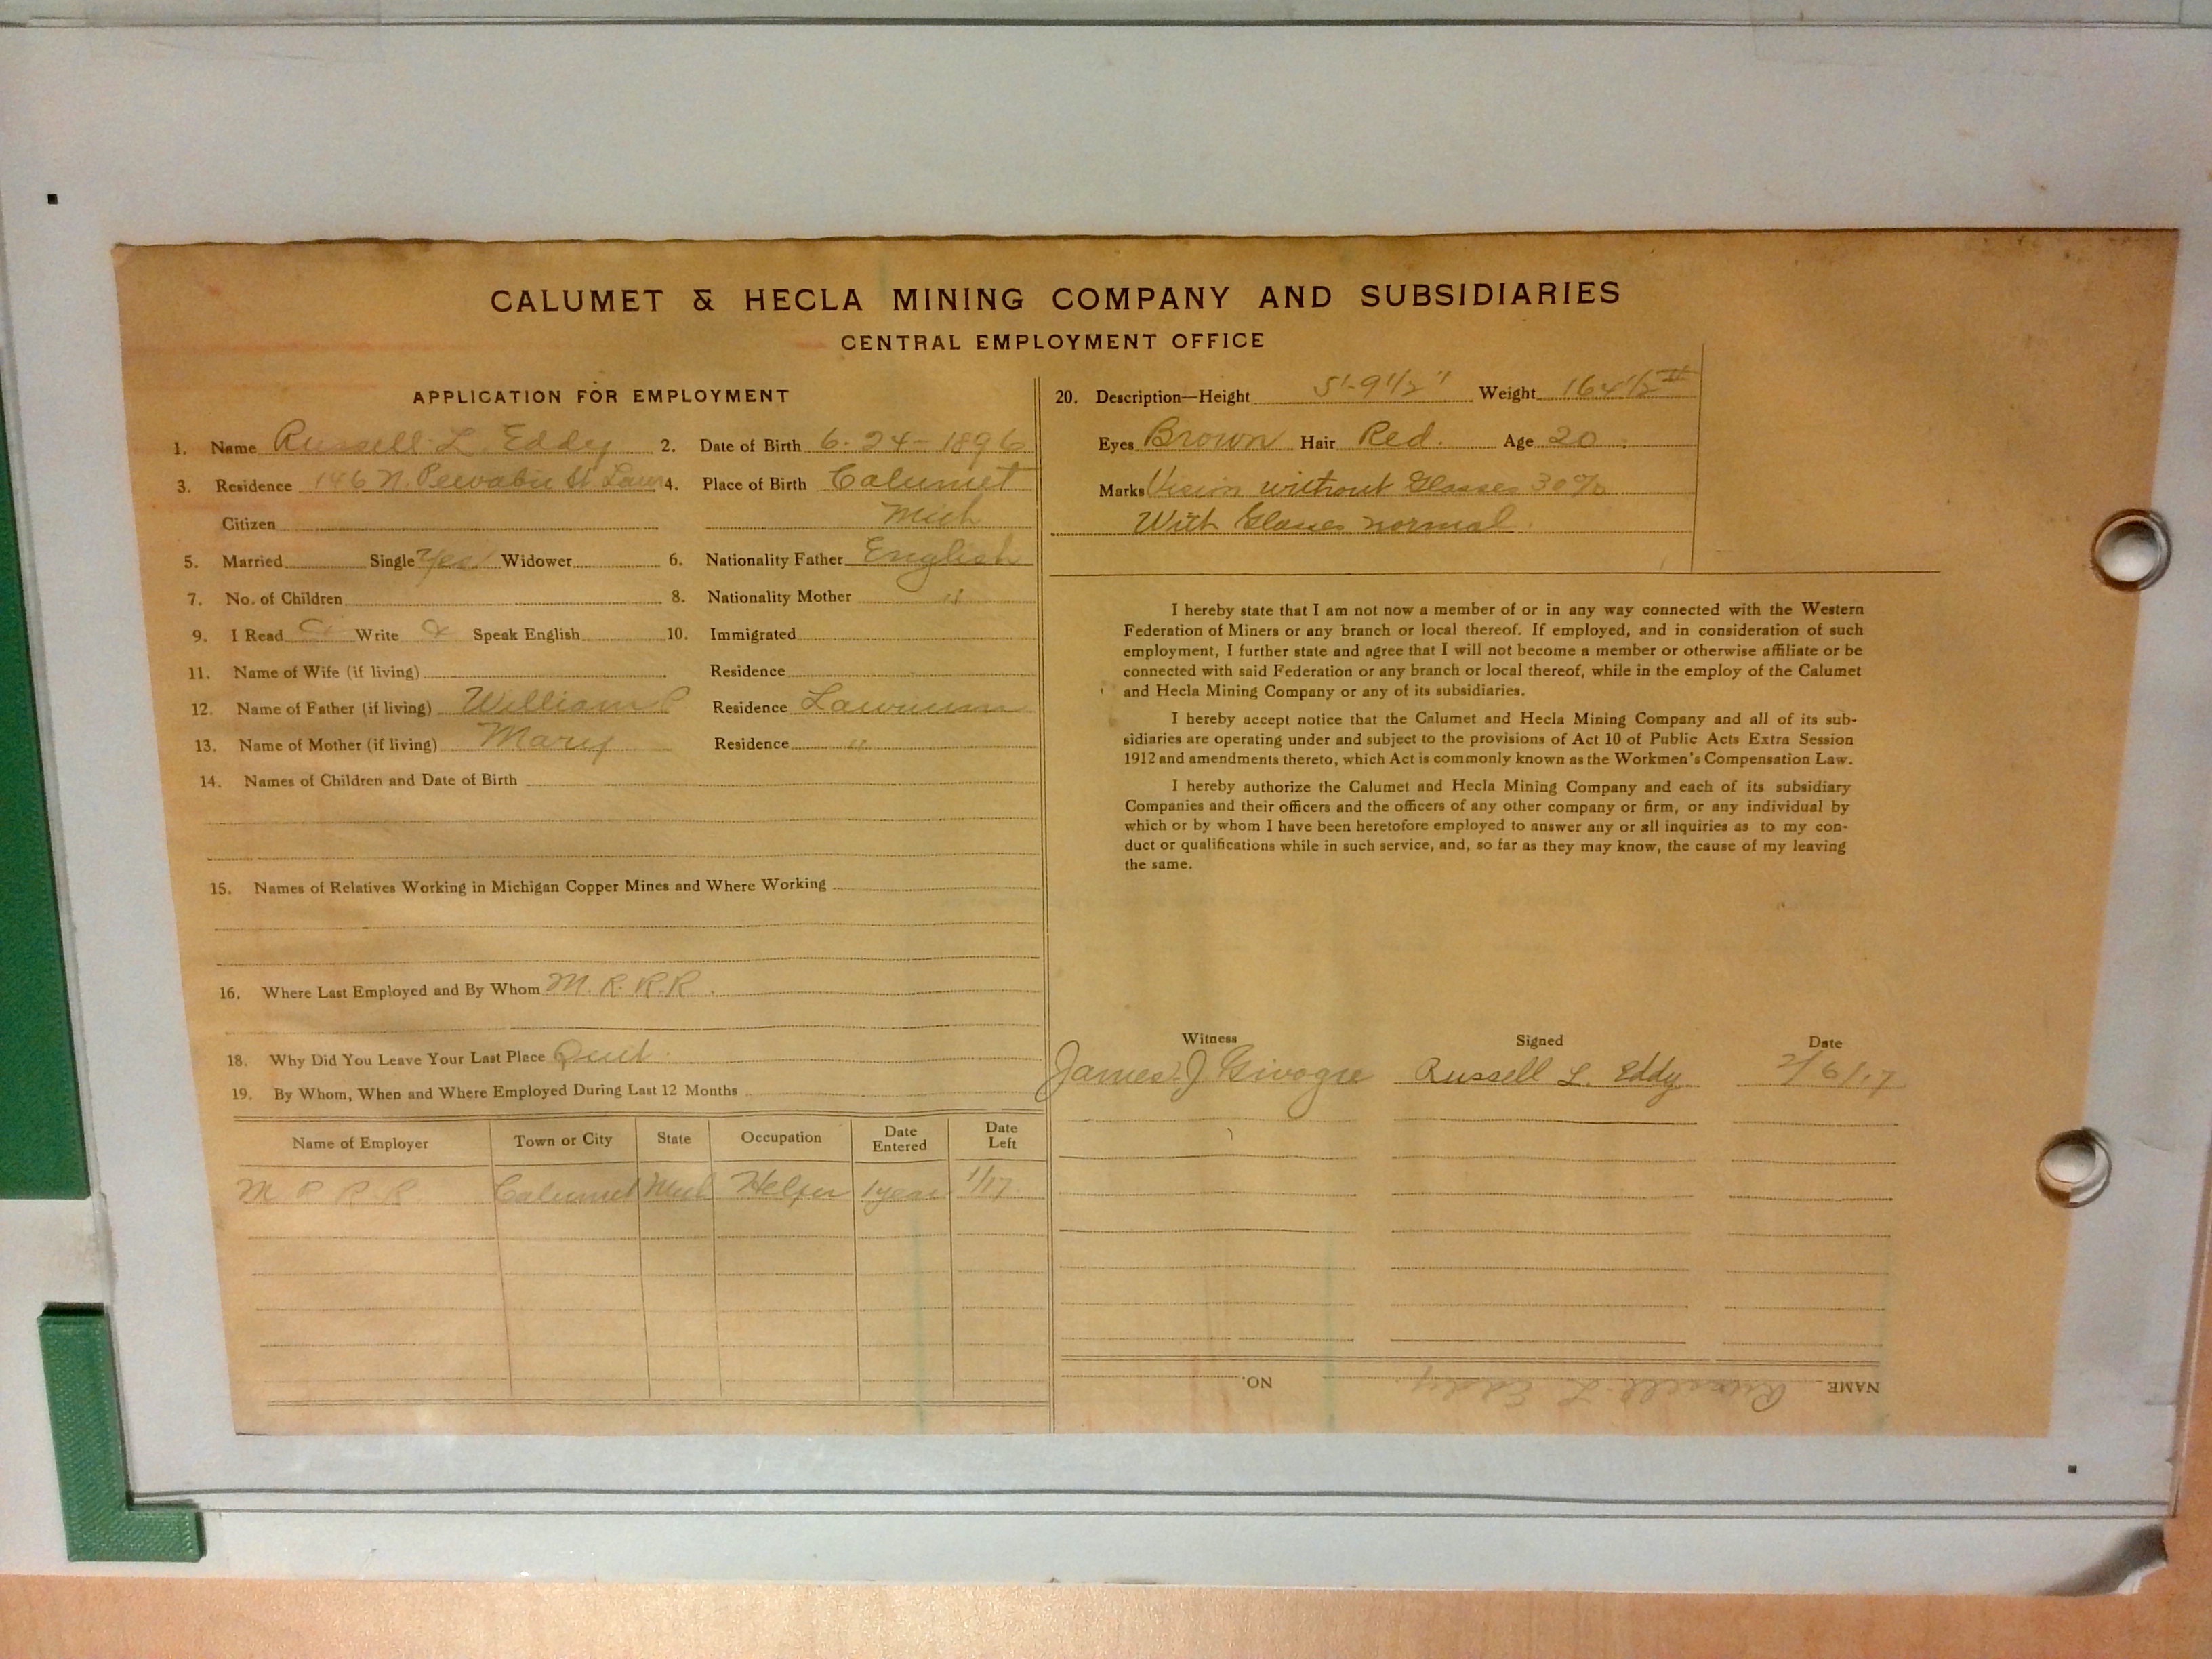 CALUMET & HECLA MINING COMPANY AND SUBSIDIARIES
CENTRAL EMPLOYMENT OFFICE
APPLICATION FOR EMPLOYMENT
1. Name Russell L. Eddy 2. Date of Birth 6-24-1896
3. Residence 146 N. Pewabic St Laur 4. Place of Birth Calumet
Citizen Mich
5. Married Single Yes Widower 6. Nationality Father English
7. No. of Children 8. Nationality Mother "
9. I Read Write Speak English 10. Immigrated
11. Name of Wife (if living) Residence
12. Name of Father (if living) William Residence Laurium
13. Name of Mother (if living) Mary Residence "
14. Names of Children and Date of Birth
15. Names of Relatives Working in Michigan Copper Mines and Where Working
16. Where Last Employed and By Whom M. R. R.R.
18. Why Did You Leave Your Last Place Quit
19. By Whom, When and Where Employed During Last 12 Months
Name of Employer Town or City State Occupation Date Entered Date Left
M R R R Calumet Mich Helper 1 year 1/17
20. Description—Height 5'-9 1/2" Weight 164 1/2 #
Eyes Brown Hair Red. Age 20
Marks Vision without Glasses 30%
With Glasses normal
I hereby state that I am not now a member of or in any way connected with the Western
Federation of Miners or any branch or local thereof. If employed, and in consideration of such
employment, I further state and agree that I will not become a member or otherwise affiliate or be
connected with said Federation or any branch or local thereof, while in the employ of the Calumet
and Hecla Mining Company or any of its subsidiaries.
I hereby accept notice that the Calumet and Hecla Mining Company and all of its sub-
sidiaries are operating under and subject to the provisions of Act 10 of Public Acts Extra Session
1912 and amendments thereto, which Act is commonly known as the Workmen's Compensation Law.
I hereby authorize the Calumet and Hecla Mining Company and each of its subsidiary
Companies and their officers and the officers of any other company or firm, or any individual by
which or by whom I have been heretofore employed to answer any or all inquiries as to my con-
duct or qualifications while in such service, and, so far as they may know, the cause of my leaving
the same.
Witness Signed Date
James J Russell L. Eddy 2/6/17
NAME Russell L Eddy NO.